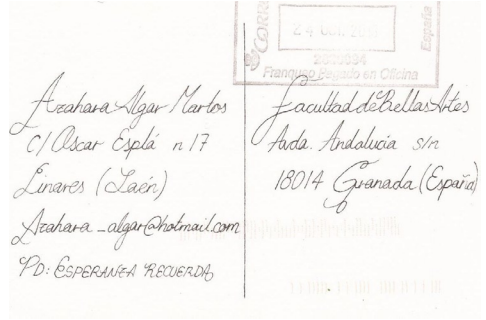 CORRE
24 OCT. 20
España
2800084
Franqueo Pagado en Oficina
Azahara Algar Martos
C/ Oscar Esplá n 17
Linares (Jaén)
Azahara_algar@hotmail.com
PD: ESPERANZA RECUERDA
Facultad de Bellas Artes
Avda. Andalucía s/n
18014 Granada (España)